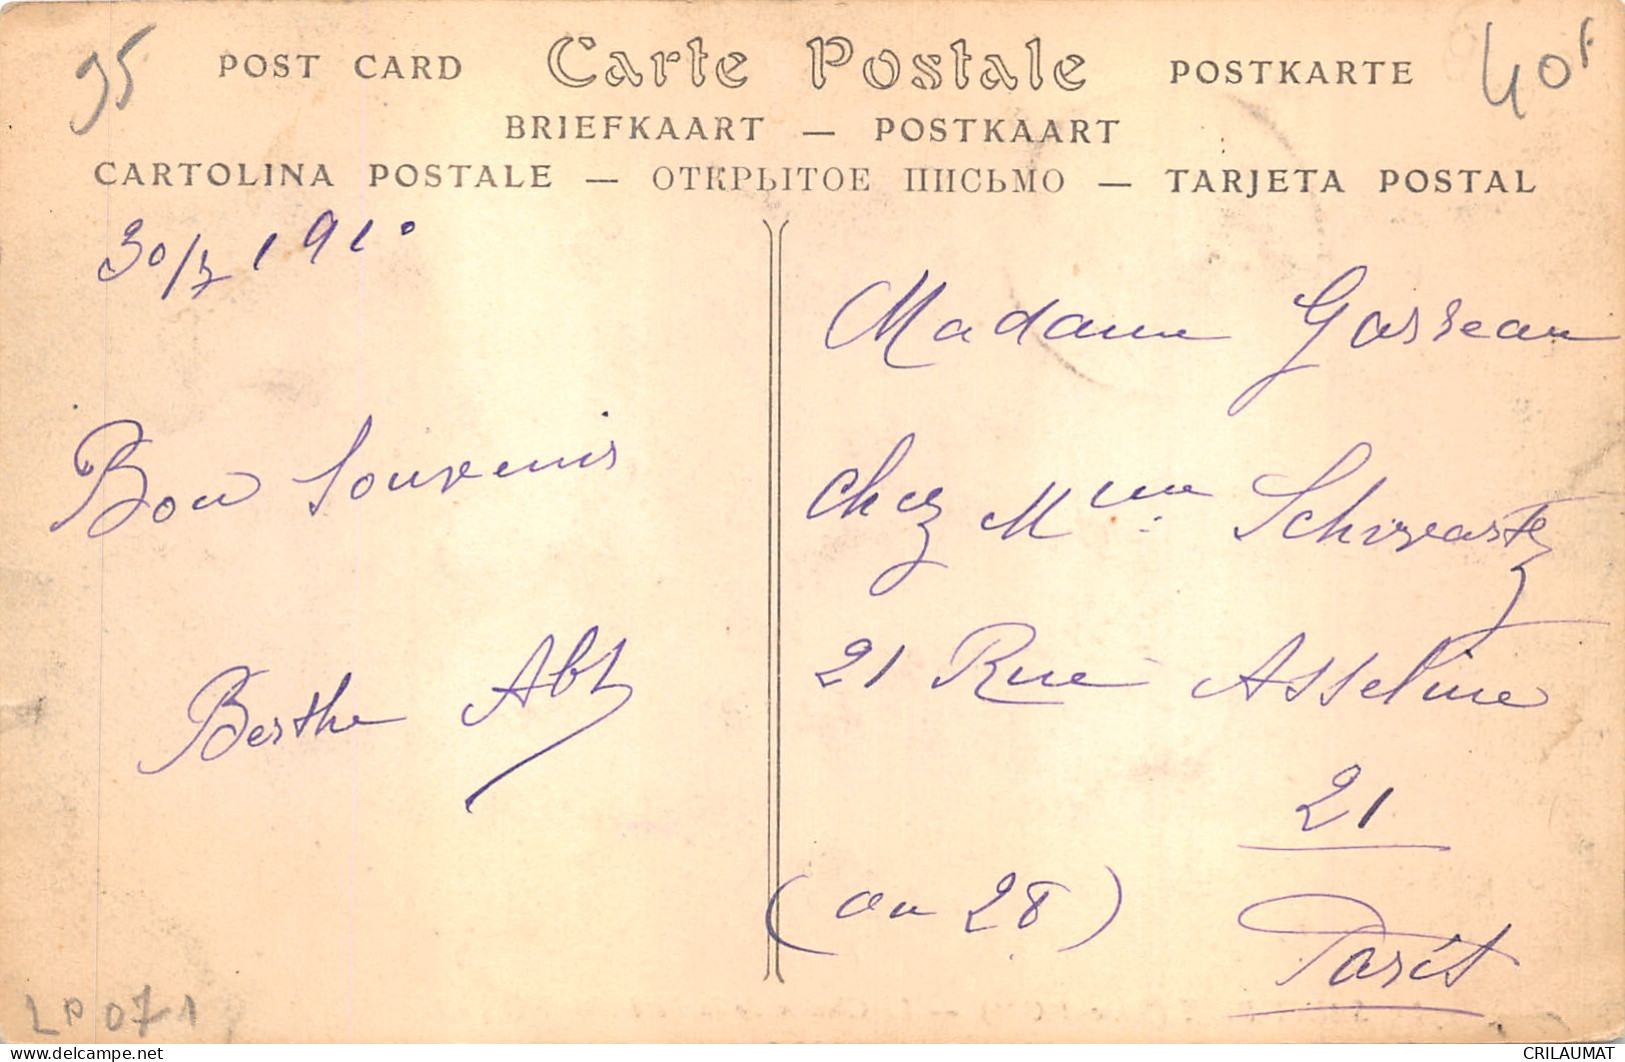 95
POST CARD Carte Postale POSTKARTE
40f
BRIEFKAART — POSTKAART
CARTOLINA POSTALE — ОТКРЫТОЕ ПИСЬМО — TARJETA POSTAL
30/7 1910
Bon Souvenir
Berthe Abt
Madame Gasseau
chez Mme Schwartz
21 Rue Asseline
21
(ou 28)
Paris
LP071
CRILAUMAT